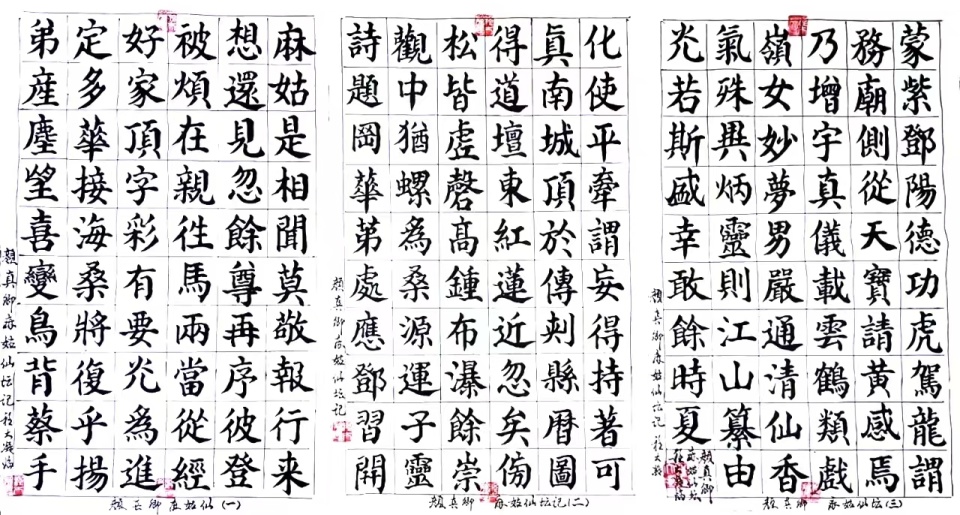 麻姑是相聞莫敬報行来
想還見忽餘尊再序彼登
被煩在親徃馬兩當從經
好家頂字彩有要光為進
定多華接海桑將復乎揚
弟産塵望喜變鳥背蔡手
顏真卿麻姑仙坛记
顏真卿麻姑仙(一)
化使平牽謂妄得持著可
真南城頂於傳刾縣曆圖
得道壇東紅蓮近忽矣傍
松皆虗磬髙鍾布瀑餘崇
觀中猶螺為桑源運子靈
詩題岡華第處應鄧習開
顏真卿麻姑仙坛记
顏真卿 麻姑仙坛记(二)
蒙紫鄧陽德功虎駕龍謂
務廟側從天寶請黄感焉
乃增宇真儀載雲鶴類戲
嶺女妙夢男嚴通清仙香
氣殊異炳靈則江山纂由
光若斯盛幸敢餘時夏
顏真卿麻姑仙坛记
顏真卿 麻姑仙坛(三)